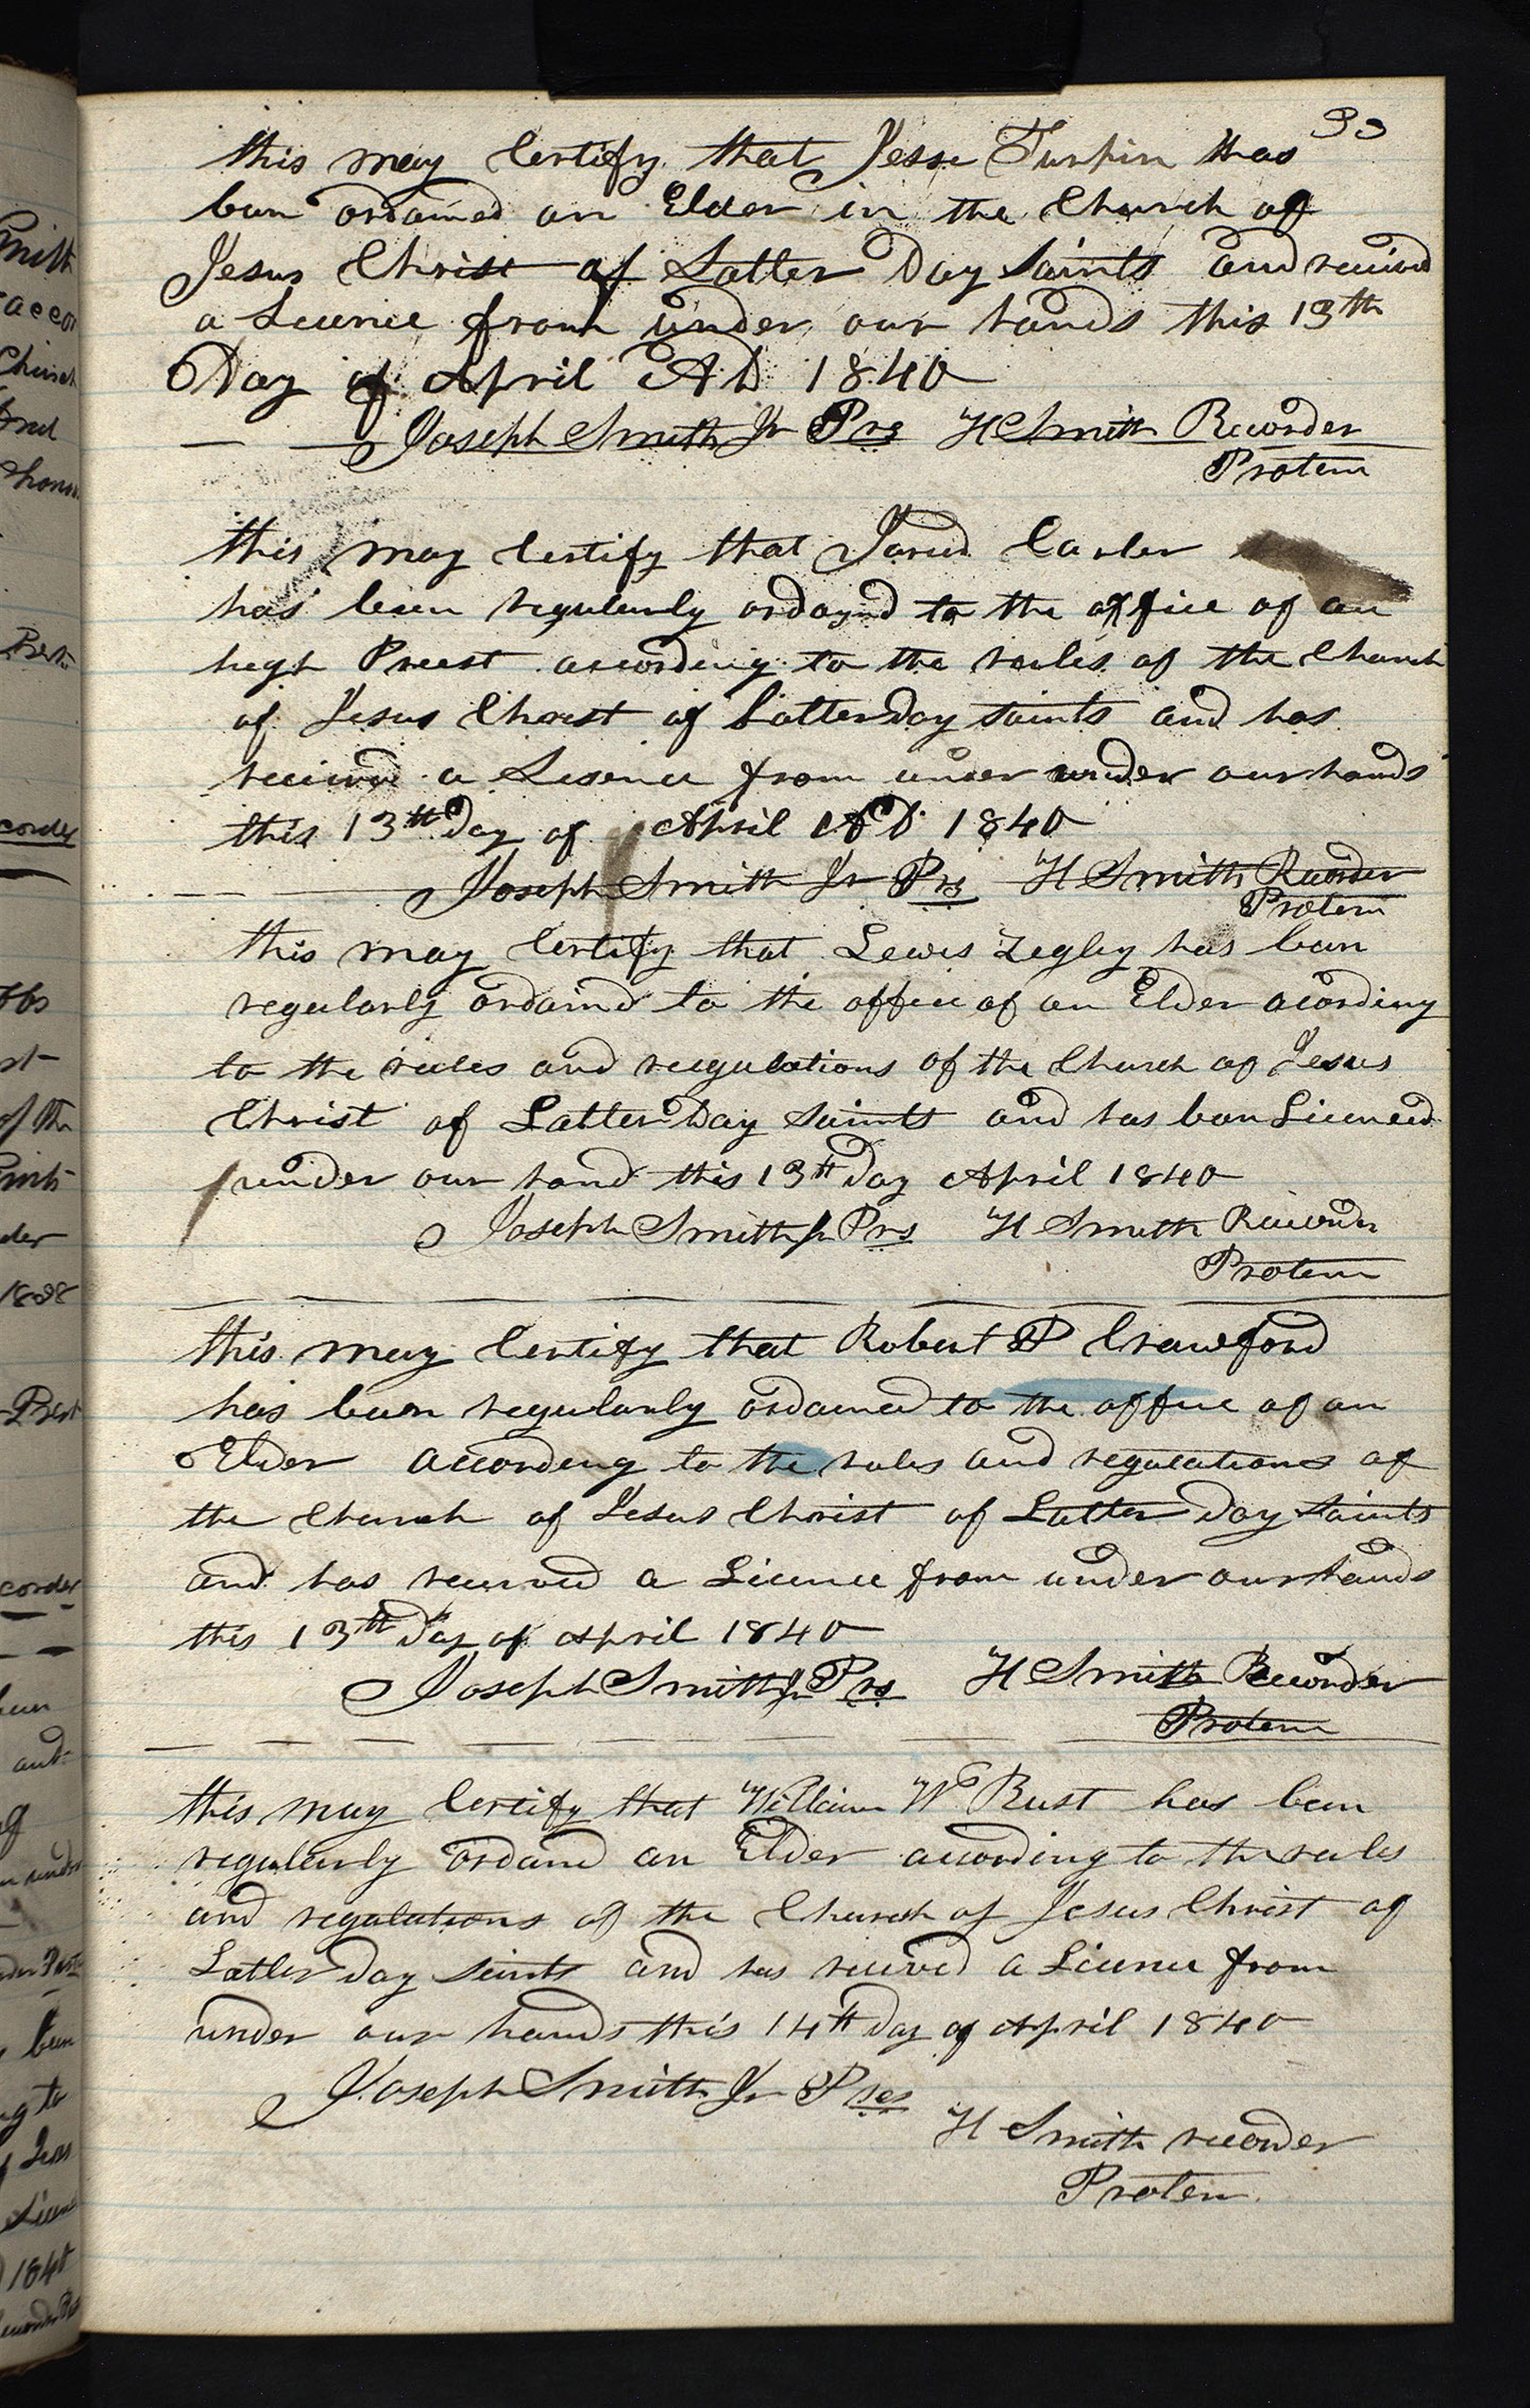 33
this may Certify that Jesse Turpin has
been ordained an Elder in the Church of
Jesus Christ of Latter Day Saints and received
a Licence from under our hands this 13th
Day of April AD 1840
Joseph Smith Jr Prs H Smith Recorder
Protem
this may Certify that Jared Carter
has been regularly ordaynd to the office of an
high Preest according to the rules of the Church
of Jesus Christ of Latterday saints and has
received a Lisence from under under our hands
this 13th Day of April AD 1840
Joseph Smith Jr Prs H Smith Recorder
Protem
this may Certify that Lewis Zegley has been
regularly ordaind to the office of an Elder acording
to the rules and reegulations of the Church of Jesus
Christ of Latter Day Saints and has been Licenced
under our hand this 13th Day April 1840
Joseph Smith Jr Prs H Smith Recorder
Protem
this may Certify that Robert P Crawford
has been regularly ordained to the office of an
Elder according to the rules and regulations of
the Church of Jesus Christ of Latter Day Saints
and has received a Licence from under our hands
this 13th Day of April 1840
Joseph Smith Jr Prs H Smith Recorder
Protem
this may Certify that William W Rust has been
regularly ordand an Elder according to the rules
and regulations of the Church of Jesus Christ of
Latter Day Saints and has received a Licence from
under our hands this 14th Day of April 1840
Joseph Smith Jr Pres
H Smith recorder
Protem